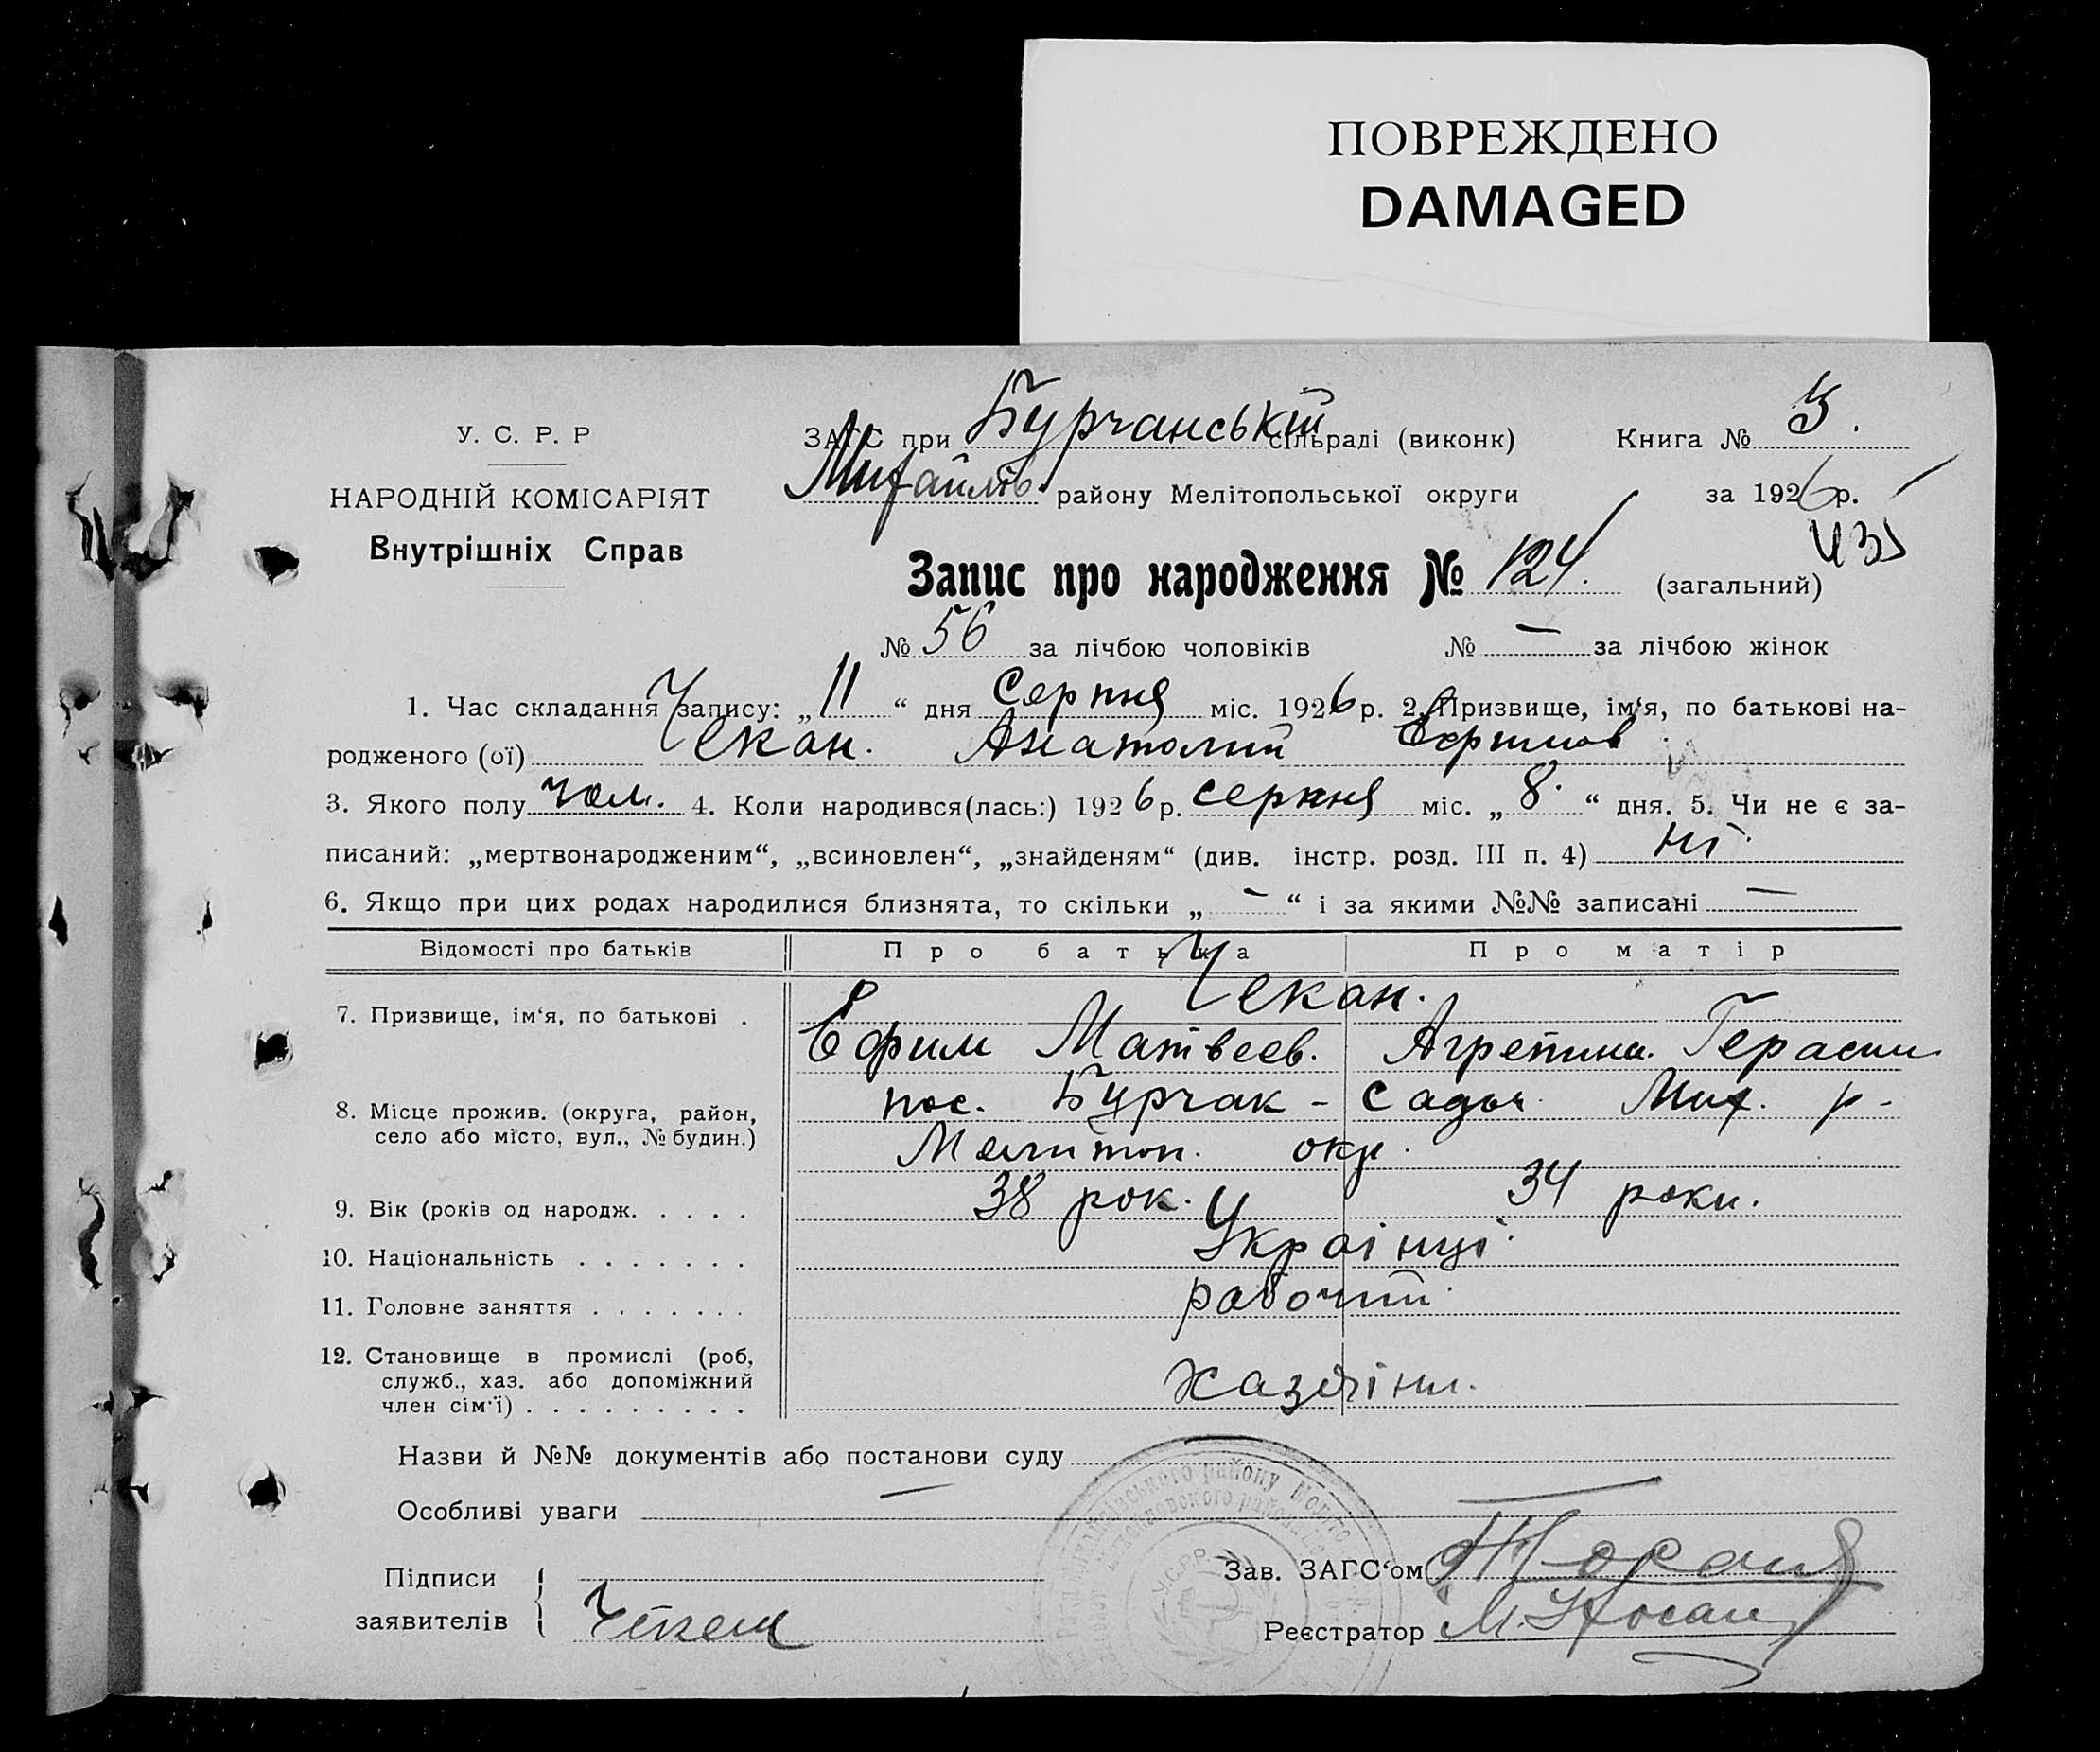 ПОВРЕЖДЕНО
DAMAGED
У. С. Р. Р
НАРОДНІЙ КОМІСАРІЯТ
Внутрішніх Справ
ЗАГС при Бурчанській сільраді (виконк) Книга № 5.
Михайлів. району Мелітопольської округи за 1926 р.
Запис про народження № 124. (загальний)
№ 56 за лічбою чоловіків № — за лічбою жінок
1. Час складання запису: „11“ дня Серпня міс. 1926 р. 2. Призвище, ім‘я, по батькові на-
родженого (ої) Чекан. Анатолий
3. Якого полу чол. 4. Коли народився(лась:) 1926 р. серпня міс. „8.“ дня. 5. Чи не є за-
писаний: „мертвонародженим“, „всиновлен“, „знайденям“ (див. інстр. розд. III п. 4) ні.
6. Якщо при цих родах народилися близнята, то скільки „—“ і за якими №№ записані —
Відомості про батьків Про батька Про матір
7. Призвище, ім‘я, по батькові . Чекан.
Ефим Матвеев. Агрепина. Герасим
8. Місце прожив. (округа, район, село або місто, вул., № будин.) пос. Бурчак - Мих. р-
Мелитоп. окр.
9. Вік (років од народж. . . . . 38 рок. 34 роки.
10. Національність . . . . . . . Українці.
11. Головне заняття . . . . . . . рабочий.
12. Становище в промислі (роб,
служб., хаз. або допоміжний
член сім‘ї) . . . . . . . . . хазяіни.
Назви й №№ документів або постанови суду —
Особливі уваги —
Підписи
заявителів Чекан
Зав. ЗАГС‘ом
Реєстратор
У.С.Р.Р.